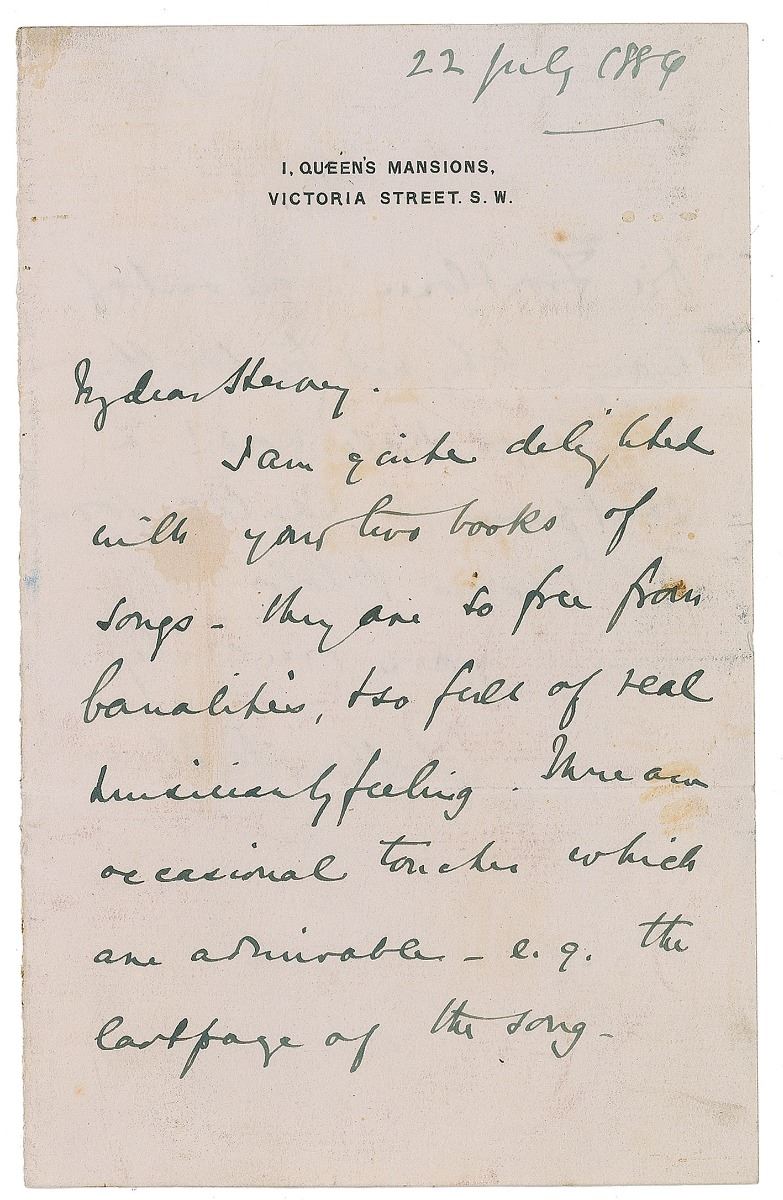 22 July 1886
1, QUEEN'S MANSIONS,
VICTORIA STREET. S. W.
My dear Hervey.
I am quite delighted
with your two books of
songs - they are so free from
banalities, & so full of real
musicianly feeling. There are
occasional touches which
are admirable - e.g. the
last page of the song -